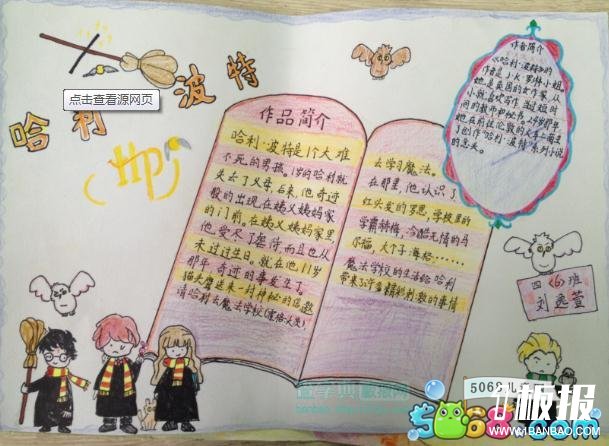 哈利·波特
点击查看源网页
作品简介
哈利·波特是1个大难
不死的男孩。1岁的哈利就
失去了父母,后来,他奇迹
般的出现在姨父姨妈家
的门前,在姨父姨妈家里,
他受尽了虐待而且也从
未过过生日。就在他11岁
那年,奇迹的事发生了,
猫头鹰送来一封神秘的信邀
请哈利去魔法学校
去学习魔法。
在那里,他认识了
红头发的罗恩,学校里的
学霸赫梅,冷酷无情的马
尔福,大个子海格……
魔法学校的生活给哈利
带来了许多精彩刺激的事情
作者简介
《哈利·波特》的
作者是J·K·罗林小姐,
她是英国的女作家,从
小就喜欢写作
四〈6〉班
刘逸萱
5068儿
板报
WWW.1BANBAO.COM